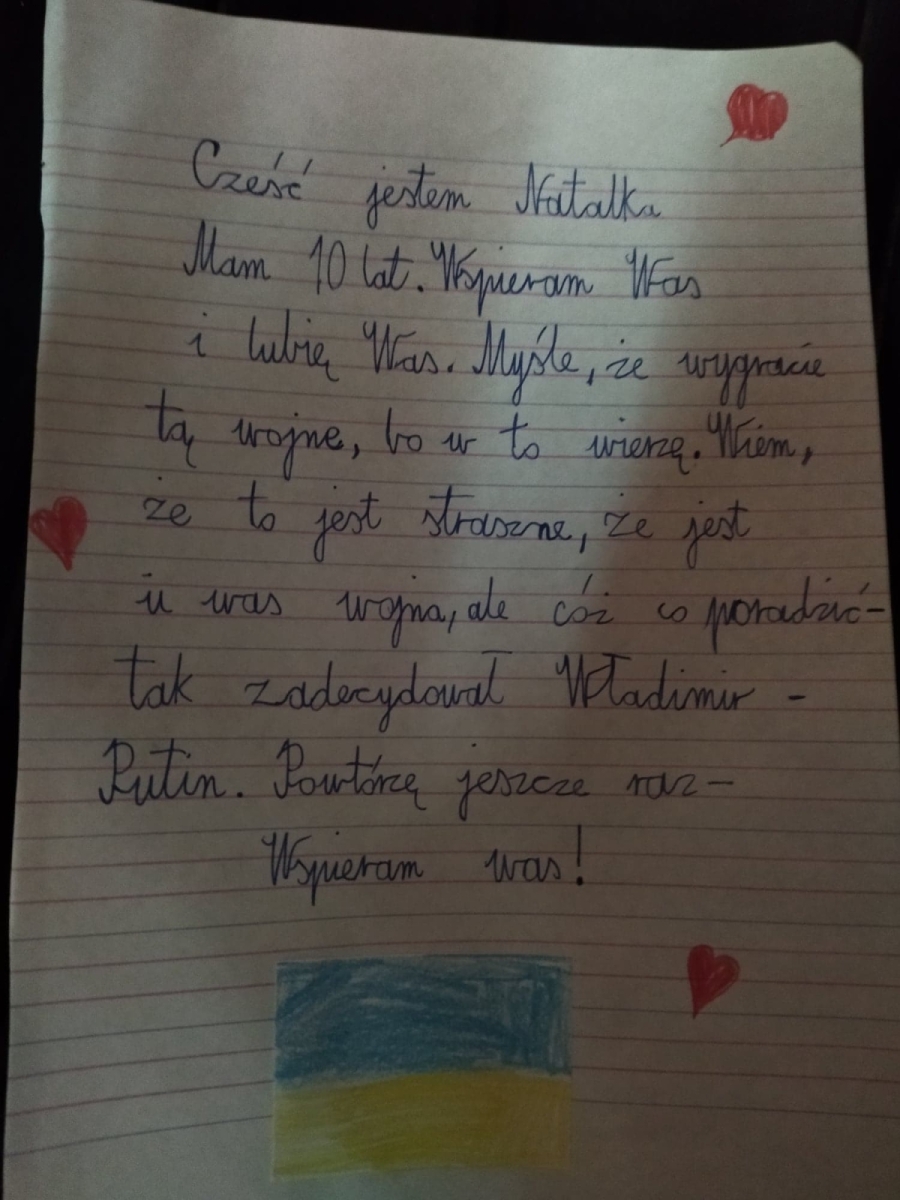 Cześć jestem Natalka
Mam 10 lat. Wspieram Was
i lubię Was. Myśle, że wygracie
tą wojne, bo w to wierzę. Wiem,
że to jest straszne, że jest
u was wojna, ale cóż co poradzić-
tak zadecydował Władimir -
Putin. Powtórzę jeszcze raz-
Wspieram was!